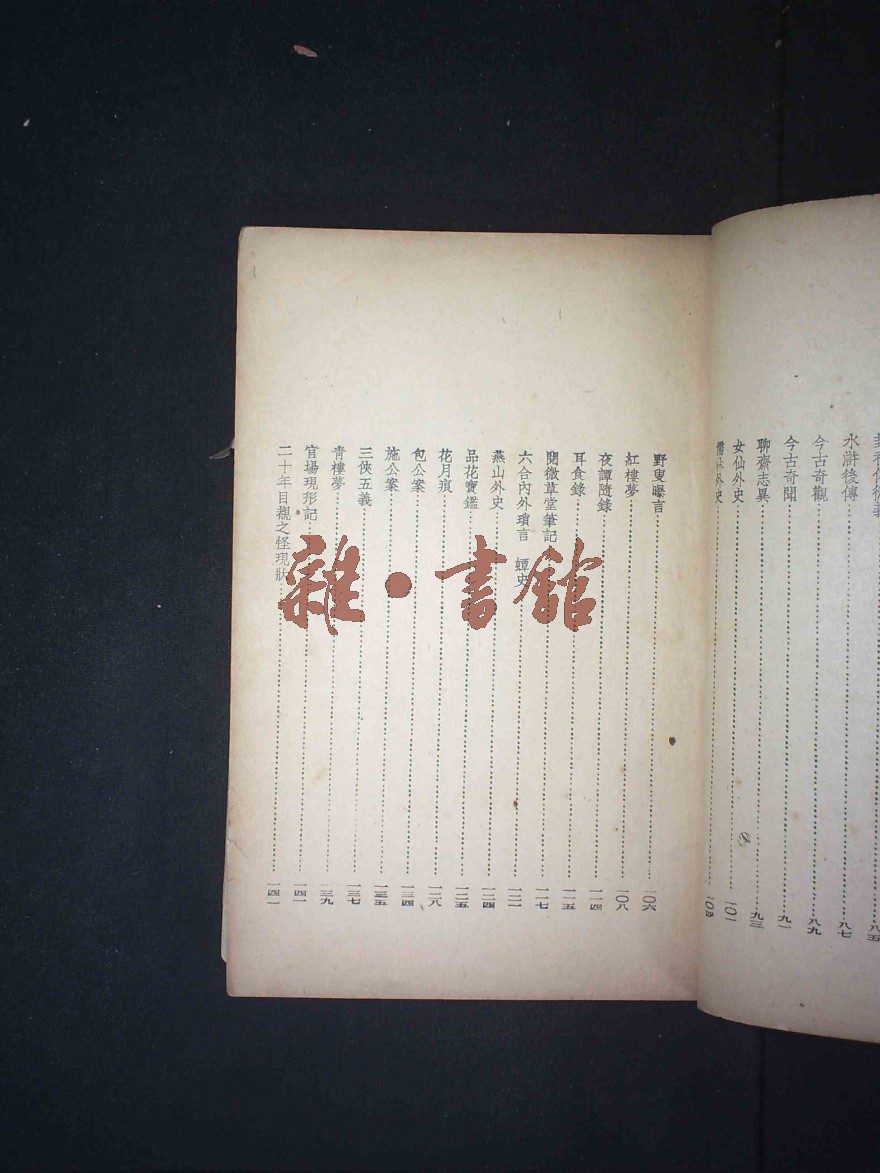 水滸後傳 八七
今古奇觀 八九
今古奇聞 九一
聊齋志異 九三
女仙外史 一〇一
儒林外史 一〇四
野叟曝言 一〇六
紅樓夢 一〇八
夜譚隨錄 一一四
耳食錄 一一五
閱微草堂筆記 一一七
六合內外瑣言 蟫史 一二一
燕山外史 一二四
品花寶鑑 一二五
花月痕 一二八
包公案 一三四
施公案 一三五
三俠五義 一三七
青樓夢 一三九
官場現形記 一四一
二十年目覩之怪現狀 一四一
雜·書館